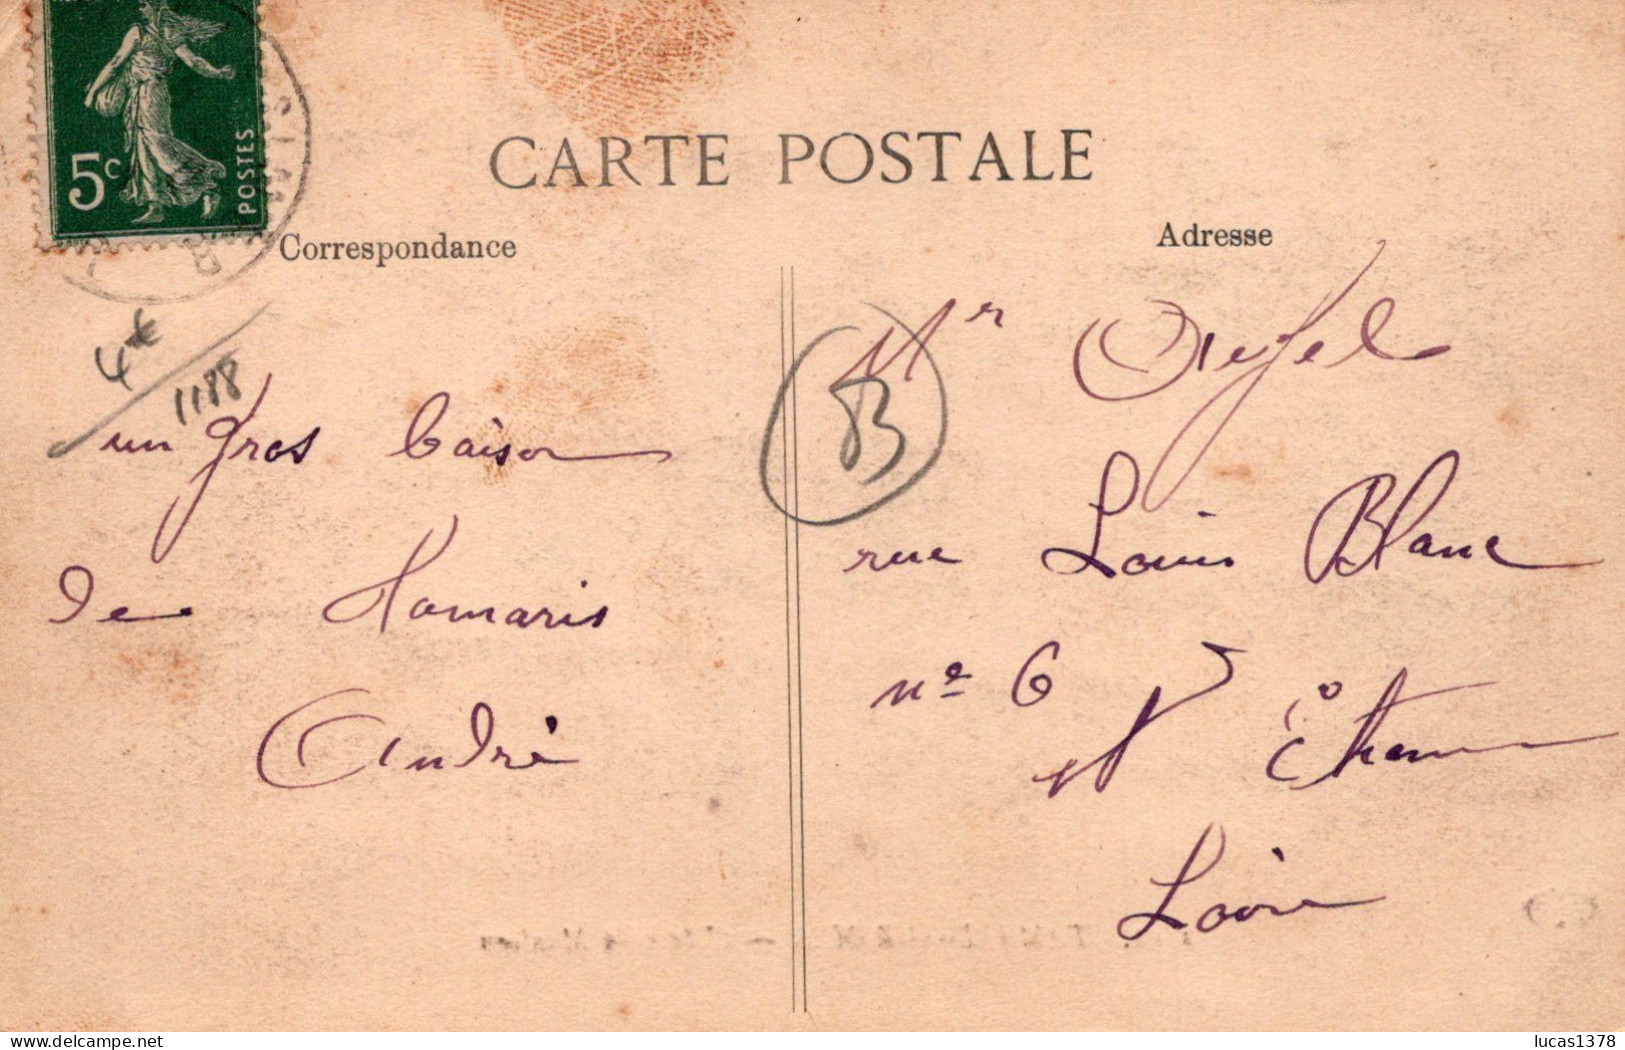 5c
POSTES
CARTE POSTALE
Correspondance
Adresse
4€
1188
un gros baiser
de Hamaris
André
B
Mr
rue Louis Blanc
no 6
St Étienne
Loire
delcampe.net
lucas1378